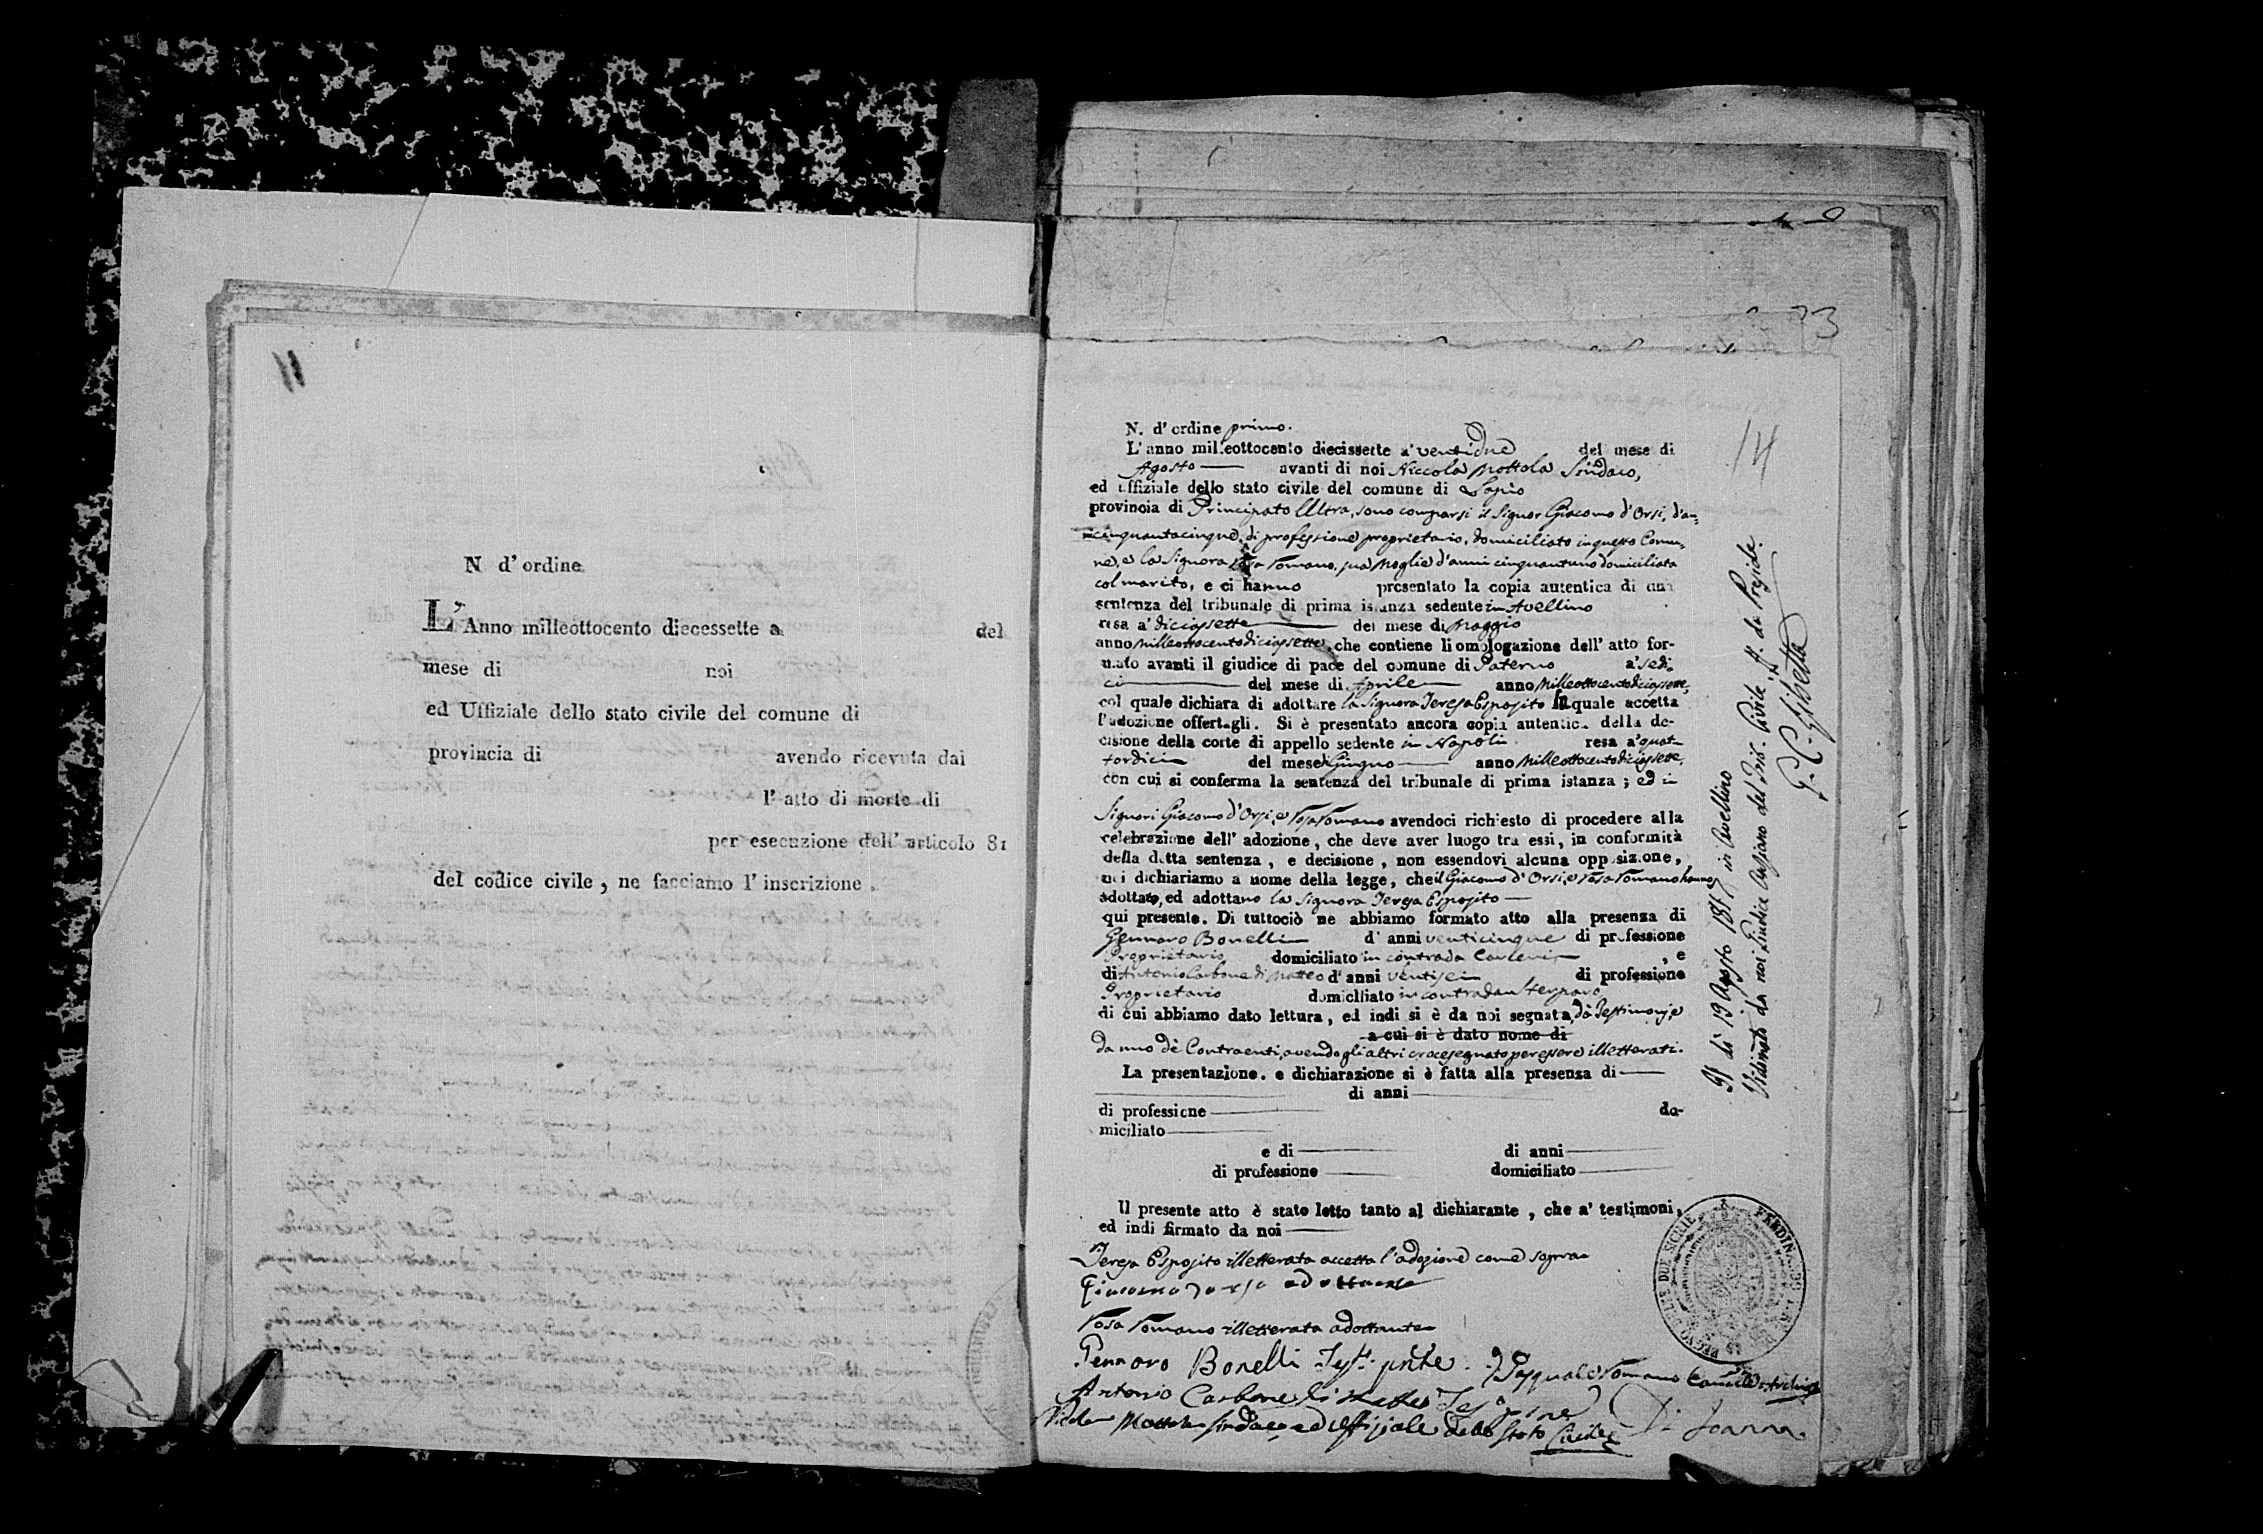 11
N d' ordine
L' Anno milleottocento diecessette a del
mese di noi
ed Uffiziale dello stato civile del comune di
provincia di avendo ricevuta dai
l' atto di morte di
per esecuzione dell' articolo 81
del codice civile , ne facciamo l' inscrizione .
73
14
N. d' ordine primo.
L' anno milleottocento diecissette a' ventidue del mese di
Agosto avanti di noi Niccola Mottola Sindaco,
ed Uffiziale dello stato civile del comune di Lapio
provincia di Principato Ultra, sono comparsi il Signor Giacomo d'Orsi, d'an=
ni cinquantacinque, di professione proprietario, domiciliato in questo Comu=
ne, e la Signora Rosa Romano, sua moglie d'anni cinquantuno domiciliata
col marito, e ci hanno presentato la copia autentica di una
sentenza del tribunale di prima istanza sedente in Avellino
resa a' diciassette del mese di Maggio
anno Milleottocentodiciassette, che contiene li omologazione dell' atto for-
mato avanti il giudice di pace del comune di Paterno a' sedi=
ci del mese di Aprile anno Milleottocentodiciassette,
col quale dichiara di adottare la Signora Teresa Esposito la quale accetta
l'adozione offertagli. Si è presentato ancora copia autentica della de-
cisione della corte di appello sedente in Napoli resa a' quat=
tordici del mese di Giugno anno Milleottocentodiciassette,
con cui si conferma la sentenza del tribunale di prima istanza ; ed i
Signori Giacomo d'Orsi, e Rosa Romano avendoci richiesto di procedere alla
celebrazione dell' adozione , che deve aver luogo tra essi, in conformità
della detta sentenza , e decisione , non essendovi alcuna opposizione ,
noi dichiariamo a nome della legge, che il Giacomo d'Orsi, e Rosa Romano hanno
adottato, ed adottano la Signora Teresa Esposito
qui presente. Di tuttociò ne abbiamo formato atto alla presenza di
Gennaro Bonelli d' anni venticinque di professione
Proprietario domiciliato in contrada , e
di Antonio Carbone di Matteo d' anni ventisei di professione
Proprietario domiciliato in contrada
di cui abbiamo dato lettura , ed indi si è da noi segnata, da Testimonj, e
a cui si è dato nome di
da uno de' Contraenti, avendo gli altri crocesegnato per essere illetterati.
La presentazione. e dichiarazione si è fatta alla presenza di
di anni
di professione do-
miciliato
e di di anni
di professione domiciliato
Il presente atto è stato letto tanto al dichiarante , che a' testimoni,
ed indi firmato da noi
Teresa Esposito illetterata accetta l'adozione come sopra
Giacomo dorsi adottante
Rosa Romano illetterata adottante
Gennaro Bonelli Test. pnte. Pasquale Romano
Antonio Carbone di Matteo
Nicola Mottola Sindaco ed Uffiziale dello Stato Civile
Di Joanna
di 19 Agosto 1817 in Avellino
Vidimato da noi Giudice Anziano del Trib. Civile ff. da Preside.
REGNO DELLE DUE SICILIE
FERDINANDO